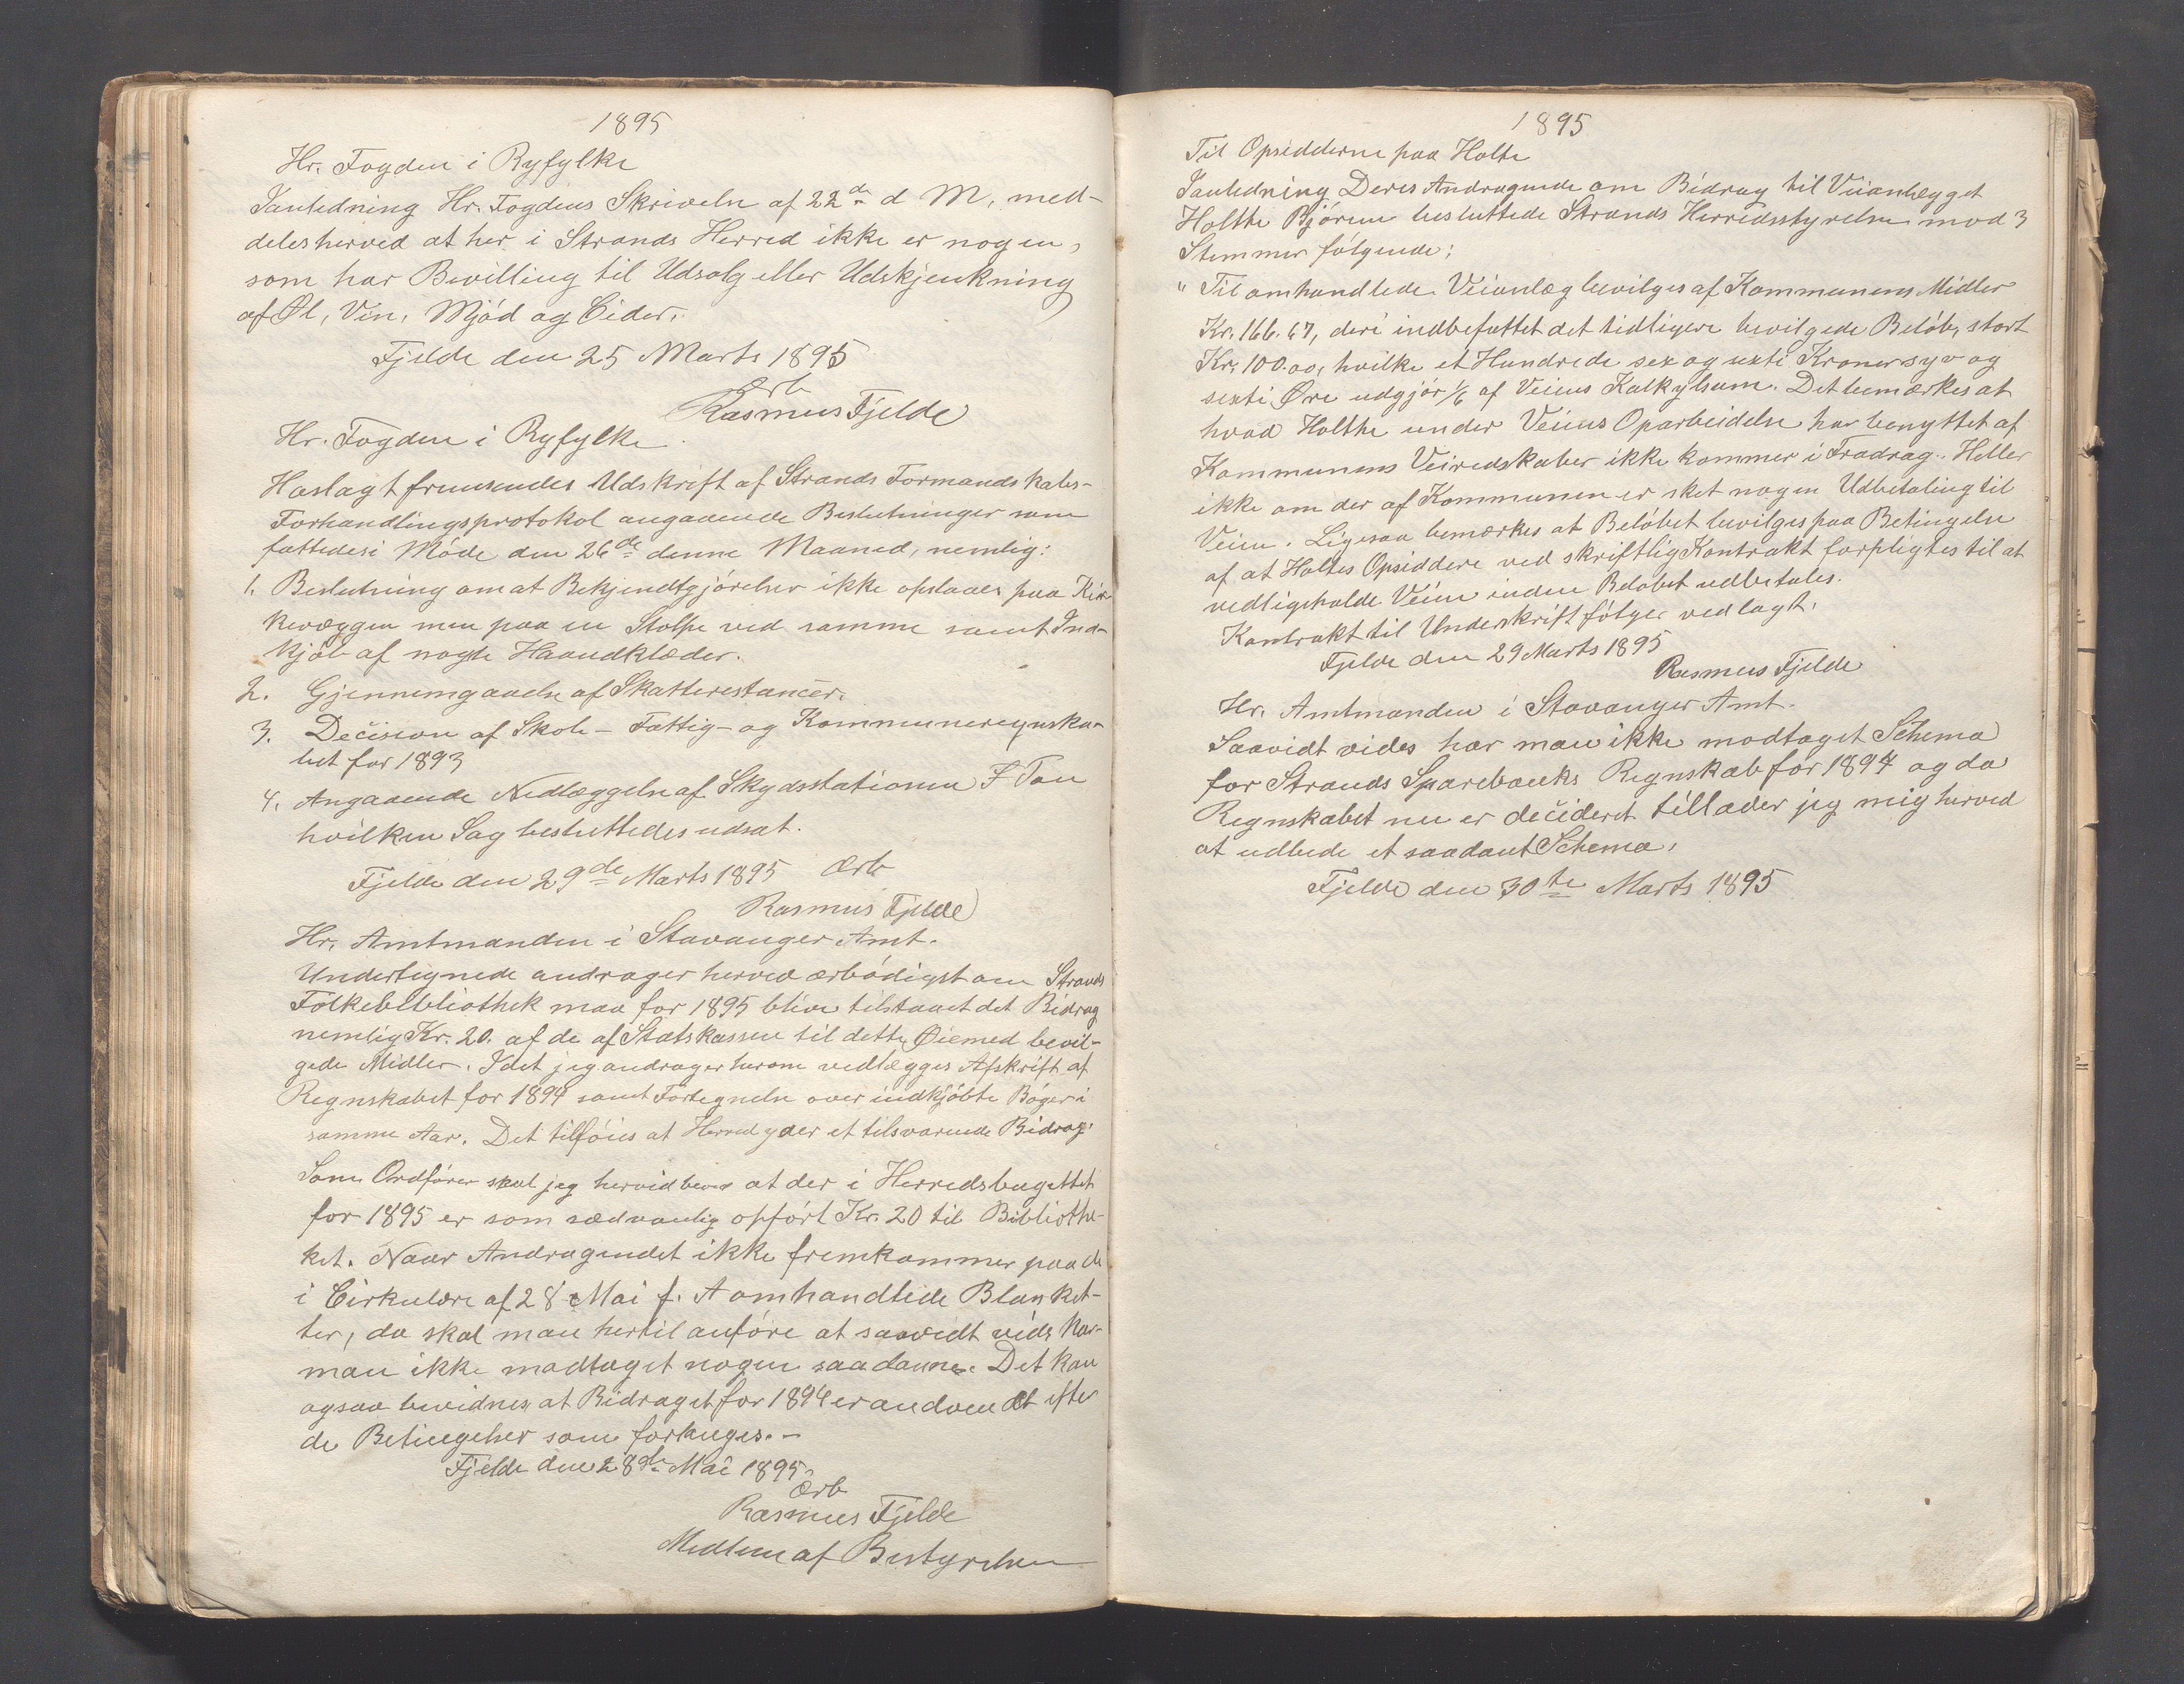 1895
Hr. Fogden i Ryfylke
Ianledning Hr. Fogdens Skrivelse af 22de d M, med-
deles herved at her i Strands Herred ikke er nogen,
som har Bevilling til Udsalg eller Udskjenkning
af Øl, Vin, Mjød og Cider.
Fjelde den 25 Marts 1895
Ærb
Rasmus Fjelde
Hr. Fogden i Ryfylke
Hoslagt fremsendes Udskrift af Strands Formandskabs-
Forhandlingsprotokol angaaende Beslutninger som
fattedes i Møde den 26de denne Maaned, nemlig:
1. Beslutning om at Bekjendtgjørelser ikke opslaaes paa Kir-
kevæggen men paa en Stolpe ved samme samt Ind-
kjøb af nogle Haandklæder.
2. Gjennemgaaelse af Skatterestancer.
3. Decision af Skole- Fattig- og Kommuneregnska-
bet for 1893
4. Angaaende Nedlæggelse af Skydsstationen F Tau
hvilken Sag besluttedes udsat.
Fjelde den 29de Marts 1895 Ærb
Rasmus Fjelde
Hr. Amtmanden i Stavanger Amt.
Undertegnede andrager herved ærbødigst om Strands
Folkebibliothek maa for 1895 blive tilstaaet det Bidrag
nemlig Kr. 20. af de af Statskassen til dette Øiemed bevil-
gede Midler. Idet jeg andrager herom vedlægges Afskrift af
Regnskabet for 1894 samt Fortegnelse over indkjøbte Bøger i
samme Aar. Det tilføies at Herred yder et tilsvarende Bidrag.
Som Ordfører skal jeg hervid bevis at der i Herredsbugettet
for 1895 er som sædvanlig opført Kr. 20 til Bibliothe-
ket. Naar Andragendet ikke fremkommer paa de
i Cirkulære af 28 Mai f. A omhandlede Blanket-
ter, da skal man hertil anføre at saavidt vids har
man ikke modtaget nogen saadanne. Det kan
ogsaa bevidnes at Bidraget for 1894 er anvendt efter
de Betingelser som forlanges.-
Fjelde den 28de Mai 1895
Ærb
Rasmus Fjelde
Medlem af Bestyrelsen
1895
Til Opsidderne paa Holte
Ianledning Deres Andragende om Bidrag til Veianlægget
Holthe Bjøren besluttede Strands Herredsstyrelse mod 3
Stemmer følgende:
" Til omhandlede Veianlæg bevilges af Kommunens Midler
Kr. 166.67, deri indbefattet det tidligere bevilgede Beløb, stort
Kr. 100.00, hvilke et Hundrede sex og sexti Kroner syv og
sexti Øre udgjør 1/6 af Veiens Kalkylsum. Det bemærkes at
hvad Holthe under Veiens Oparbeidelse har benyttet af
Kommunens Veiredskaber ikke kommer i Fradrag. Heller
ikke om der af Kommunen er sket nogen Udbetaling til
Veien. Ligesaa bemærkes at Beløbet bevilges paa Betingelse
af at Holtes Opsiddere ved skriftlig Kontrakt forpligtes til at
vedligeholde Veien inden Beløbet udbetales.
Kontrakt til Underskrift følger vedlagt.
Fjelde den 29 Marts 1895
Rasmus Fjelde
Hr. Amtmanden i Stavanger Amt.
Saavidt vides har man ikke modtaget Schema
for Strands Sparebanks Regnskab for 1894 og da
Regnskabet nu er decideret tillader jeg mig herved
at udbede et saadant Schema.
Fjelde den 30te Marts 1895